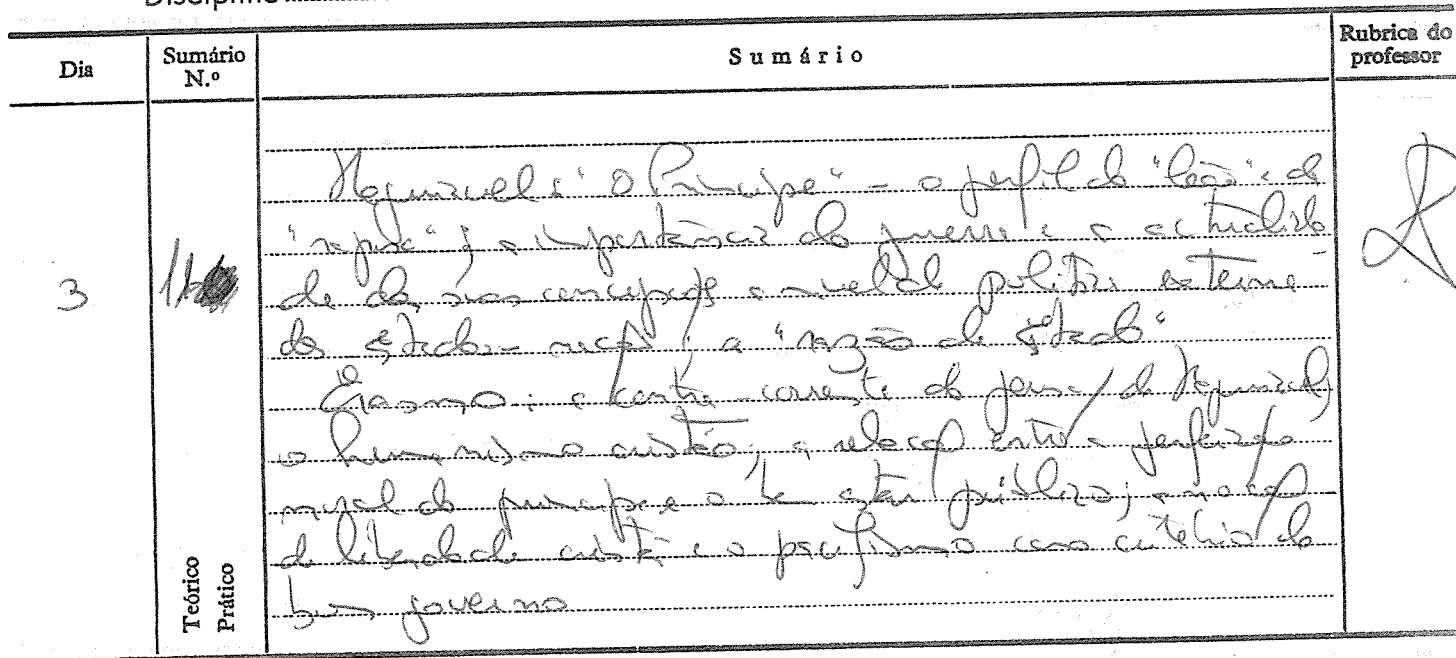 Dia
Sumário N.º
Sumário
Rubrica do professor
Maquiavel e "O Príncipe" - o perfil do "leão" e da
"raposa"; a importância da guerra e a actualida
de das suas concepções a nível de política externa
dos Estados - nação; a "razão de Estado"
3
Erasmo: a contra-corrente do pensa/ de Maquiavel;
o humanismo cristão; a relação entre a perfeição
moral do príncipe e o bem estar público; a noção
de liberdade cristã e o pacifismo como critério do
bom governo
Teórico
Prático